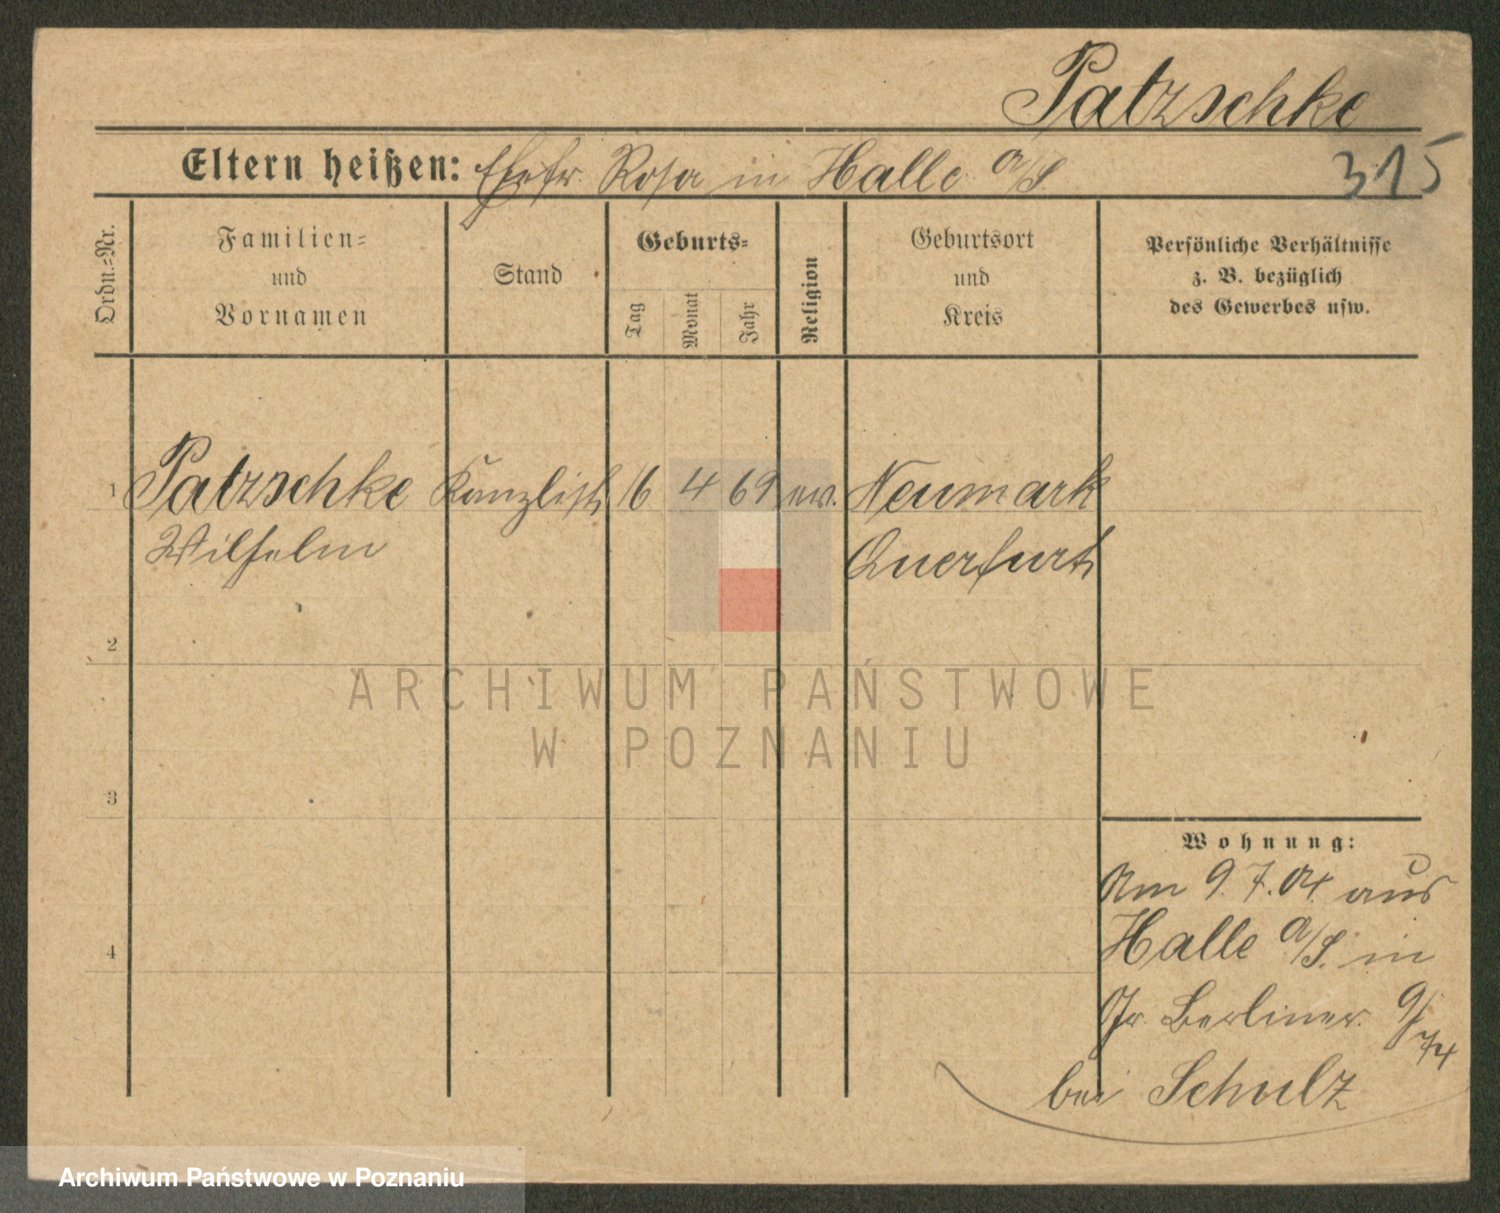 Patzschke
Eltern heißen: Ehefr. Rosa in Halle a/S
315
Ordn.-Nr.
Familien-
und
Vornamen
Stand
Geburts-
Tag
Monat
Jahr
Religion
Geburtsort
und
Kreis
Persönliche Verhältnisse
z. B. bezüglich
des Gewerbes usw.
1 Patzschke Kanzlist 16 4 69 ev. Neumark
Wilhelm Querfurt
2
ARCHIWUM PAŃSTWOWE
W POZNANIU
3
4
Wohnung:
Am 9.7.04 aus
Halle a/S. in
Gr. Berliner 9/
74
bei Schulz
Archiwum Państwowe w Poznaniu